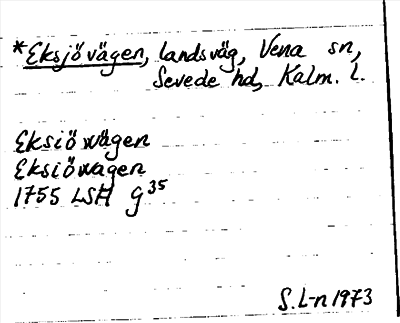 *Eksjövägen, landsväg, Vena sn,
Sevede hd, Kalm. l.
Eksiö wägen
Eksiöwagen
1755 LSH G35
S.L-n 1973